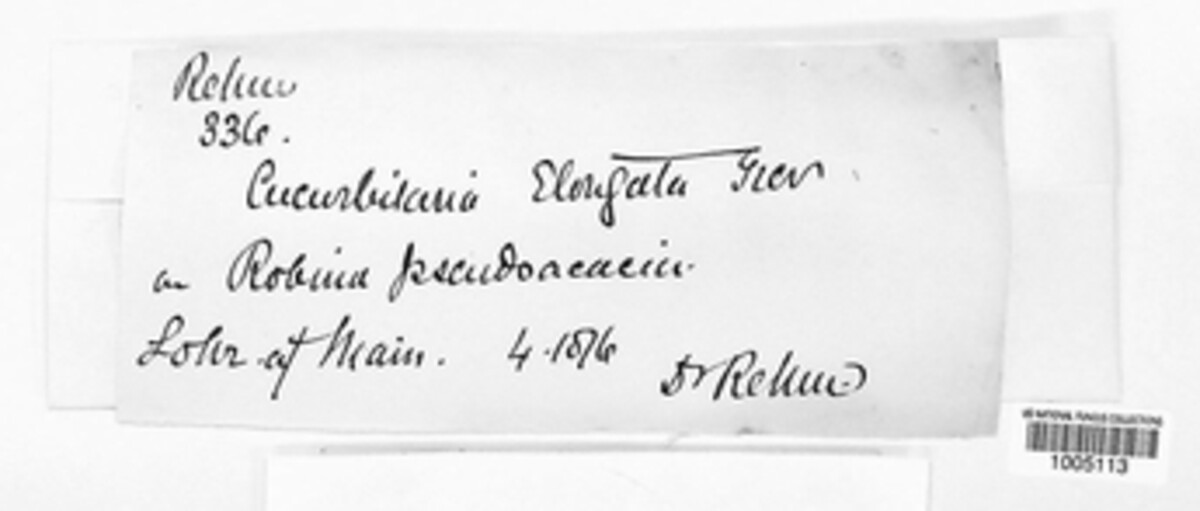 Rehm
336.
Cucurbitaria Elongata Grev
on Robinia pseudoacacia.
Lohr a/ Main. 4.1876
Dr Rehm
US NATIONAL FUNGUS COLLECTIONS
1005113